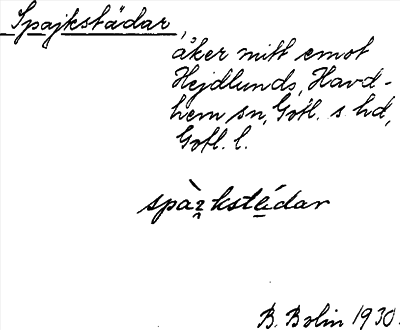 Spajkstädar,
åker mitt emot
Hejdlunds, Havd-
hem sn, Gotl. s. hd,
Gotl. l.
B. Bolin 1930.